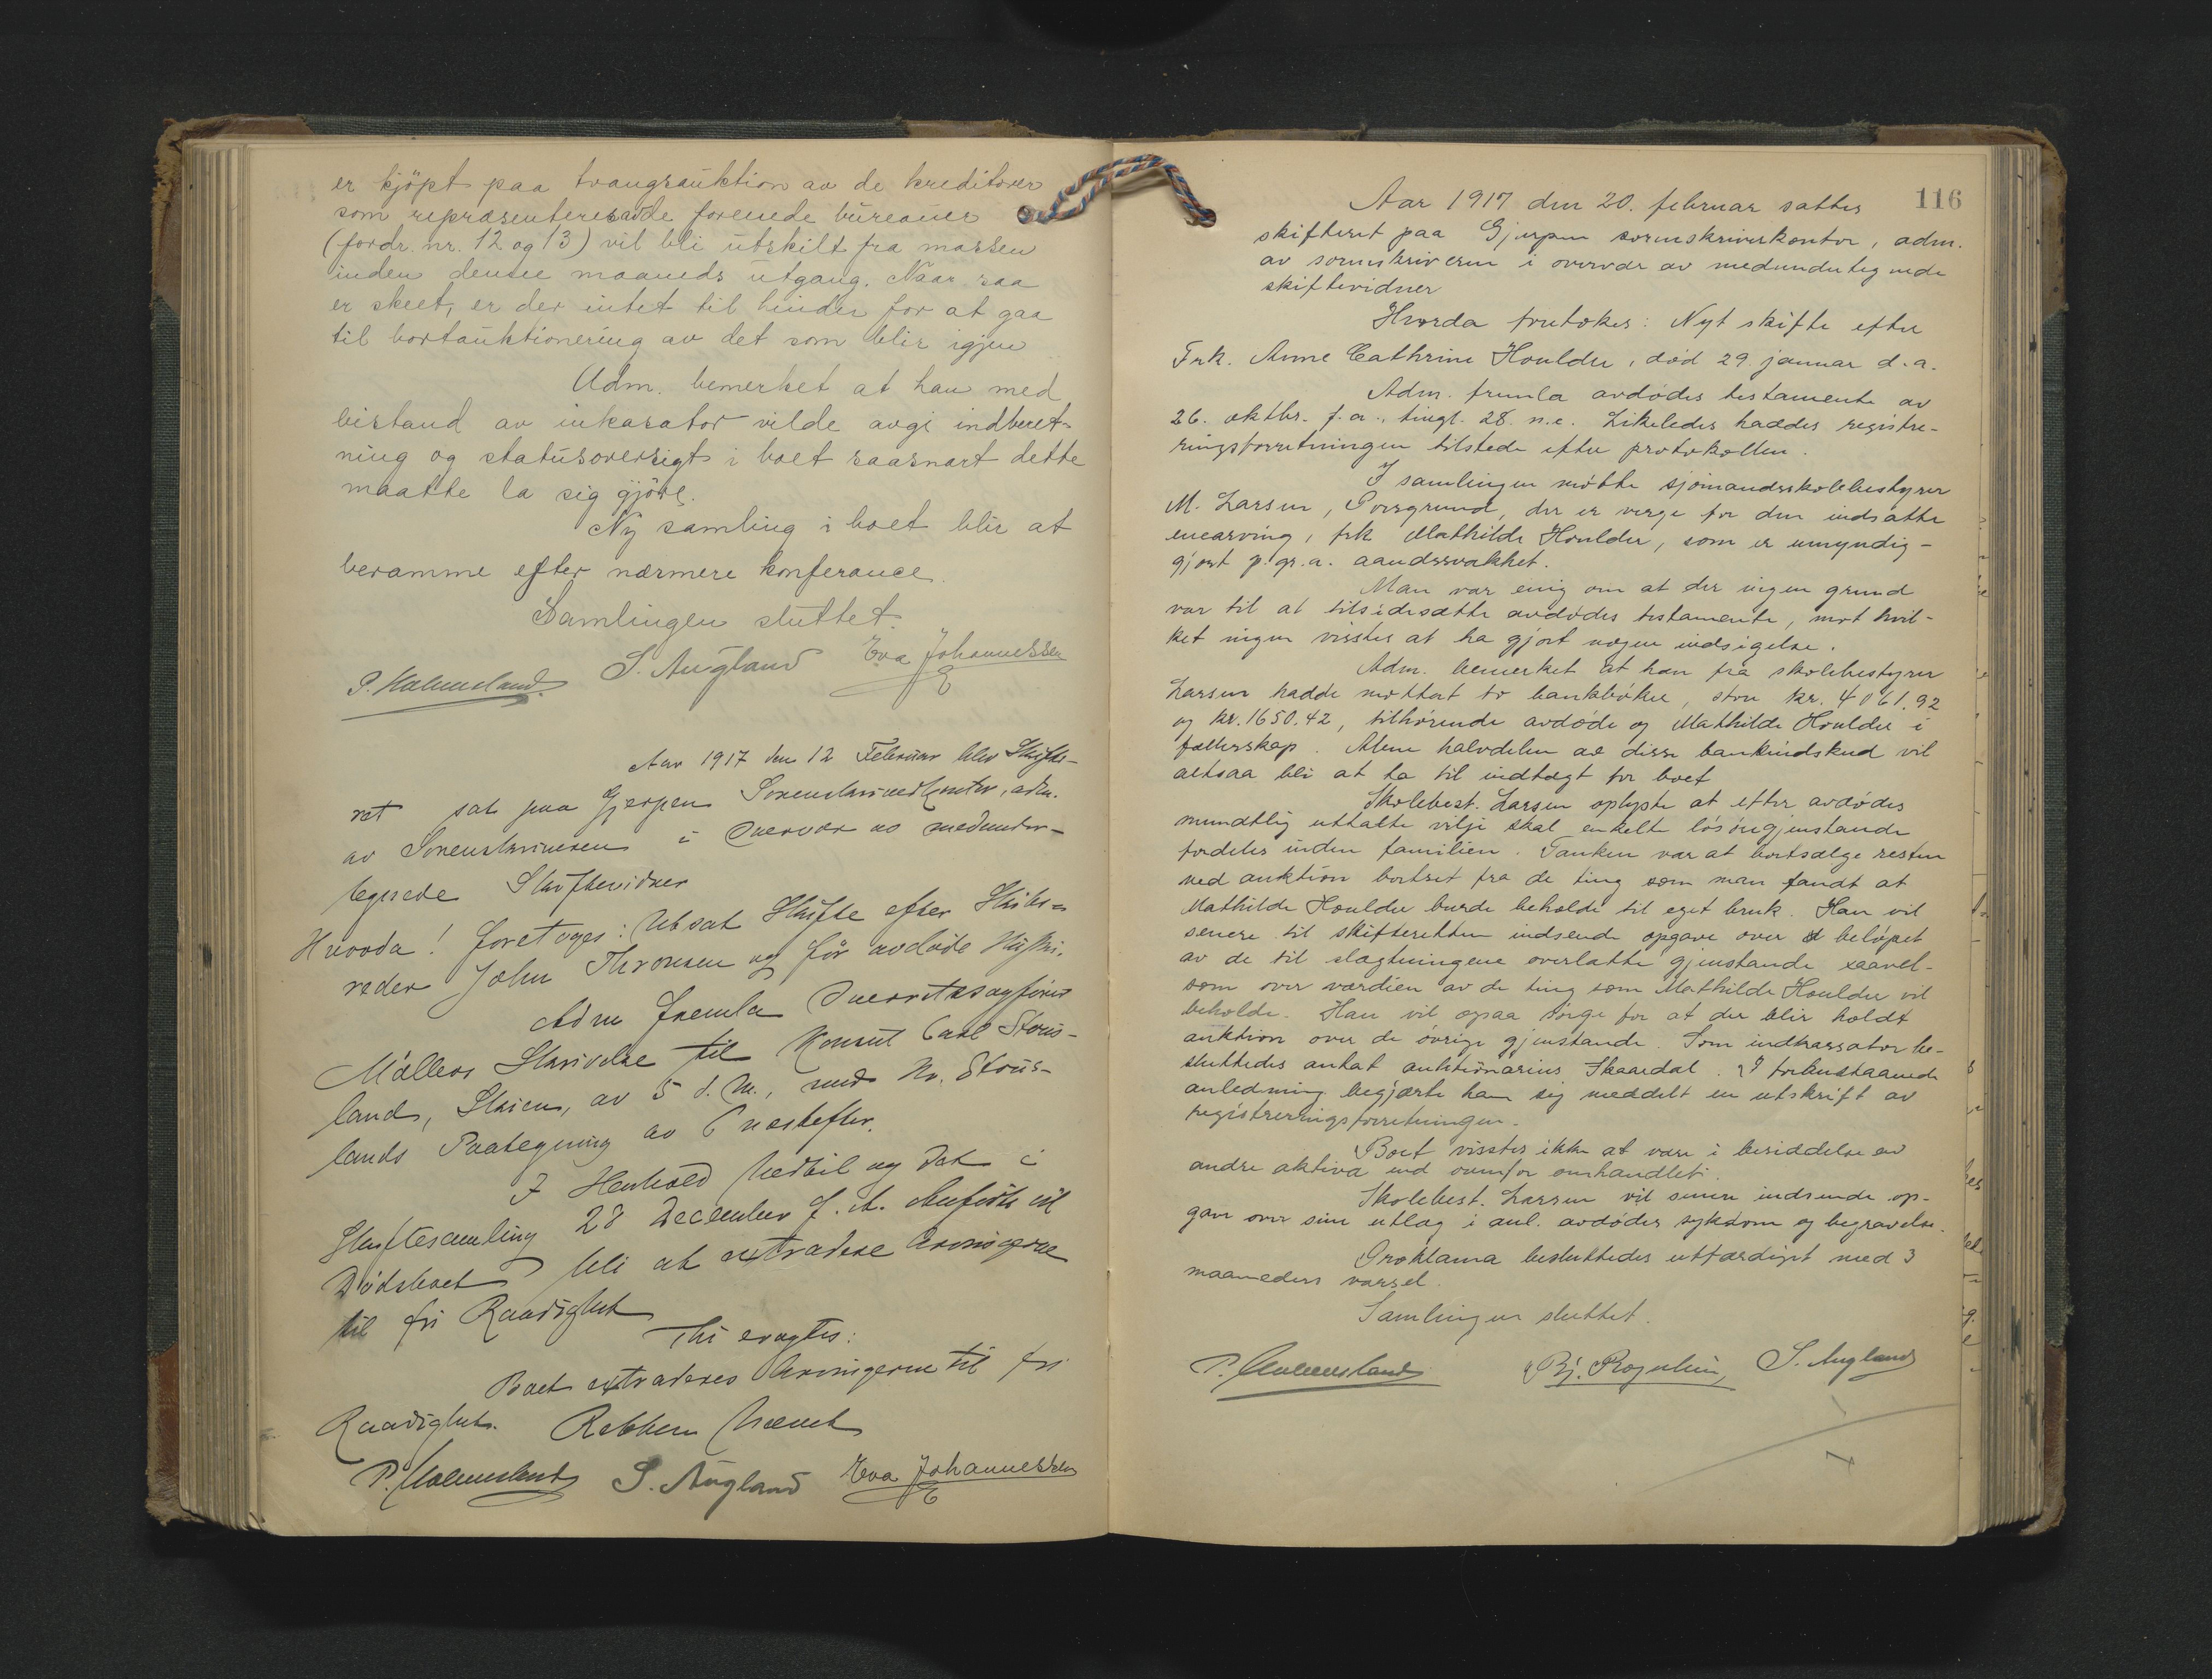 er kjöpt paa tvangsauktion av de kreditorer
som repræsenteres av de forenede bureauer
(fordr. nr. 12 og 13) vil bli utskilt fra massen
inden denne maaneds utgang. Naar saa
er skeet, er der intet til hinder for at gaa
til bortauktionering av det som blir igjen
Adm. bemerket at han med
bistand av inkasator vilde avgi indberet-
ning og statusoversigt i boet saasnart dette
maatte la sig gjöre.
Ny samling i boet blir at
beramme efter nærmere konferance.
Samlingen sluttet.
P. Holmesland S. Augland Eva Johannessen
Aar 1917 den 12 Februar blev Skifte-
ret sat paa Gjerpen Sorenskriverkontor, adm.
av Sorenskriveren i Overvær av medunder-
tegnede Skiftevidner
Hvorda! foretoges: Utsat Skifte efter Skibs-
reder John Thronsen og før avdøde Hustru.
Adm fremla Overretssagfører
Møllers Skrivelse til Konsul Carl Stous-
land, Skien, av 5 d. M., med Hr. Stous-
lands Paategning av 6 næstefter.
I Henhold hertil og det i
Skiftesamling 28 December f. A. Anførte vil
Dødsboet bli at extradere Arvingerne
til fri Raadighet
Thi eragtes:
Boet extraderes Arvingerne til fri
Raadighet. Retten hævet
P. Holmesland S. Augland Eva Johannessen
116
Aar 1917 den 20. februar sattes
skifteret paa Gjerpen sorenskriverkontor, adm.
av sorenskriveren i overvær av medundertegnede
skiftevidner
Hvorda foretokes: Nyt skifte efter
Frk. Anne Cathrine Houlder, död 29. januar d.a.
Adm. fremla avdödes testamente av
26. oktbr. f.a., tingl. 28. n.e. Likeledes haddes registre-
ringsforretningen tilstede efter protokollen.
I samlingen mötte sjömandsskolebestyrer
M. Larsen, Porsgrund, der er verge for den indsatte
enearving, frk Mathilde Houlder, som er umyndig-
gjort p.gr.a. aandssvakhet.
Man var enig om at der ingen grund
var til at tilsidesætte avdödes testamente, mot hvil-
ket ingen visstes at ha gjort nogen indsigelse.
Adm. bemerket at han fra skolebestyrer
Larsen hadde mottat to bankböker, store kr. 4061.92
og kr. 1650.42, tilhörende avdöde og Mathilde Houlder i
fællesskap. Alene halvdelen av disse bankindskud vil
altsaa bli at ta til indtægt for boet
Skolebest. Larsen oplyste at efter avdödes
mundtlig uttalte vilje skal enkelte lösöregjenstande
fordeles inden familien. Tanken var at bortsælge resten
ved auktion bortset fra de ting som man fandt at
Mathilde Houlder burde beholde til eget bruk. Han vil
senere til skifteretten indsende opgave over belöpet
av de til slægtningene overlatte gjenstande saavel-
som over værdien av de ting som Mathilde Houlder vil
beholde. Han vil ogsaa sörge for at der blir holdt
auktion over de övrige gjenstande. Som indkassator be-
sluttedes antat auktionarius Skaardal. I forbenstaaende
anledning begjærte han sig meddelt en utskrift av
registreringsforretningen.
Boet visstes ikke at være i besiddelse av
andre aktiva end ovenfor omhandlet.
Skolebest. Larsen vil senere indsende op-
gave over sine utlæg i anl. avdödes sykdom og begravelse.
Proklama besluttedes utfærdiget med 3
maaneders varsel.
Samlingen sluttet.
P. Holmesland Bj. Rognlien, S. Augland